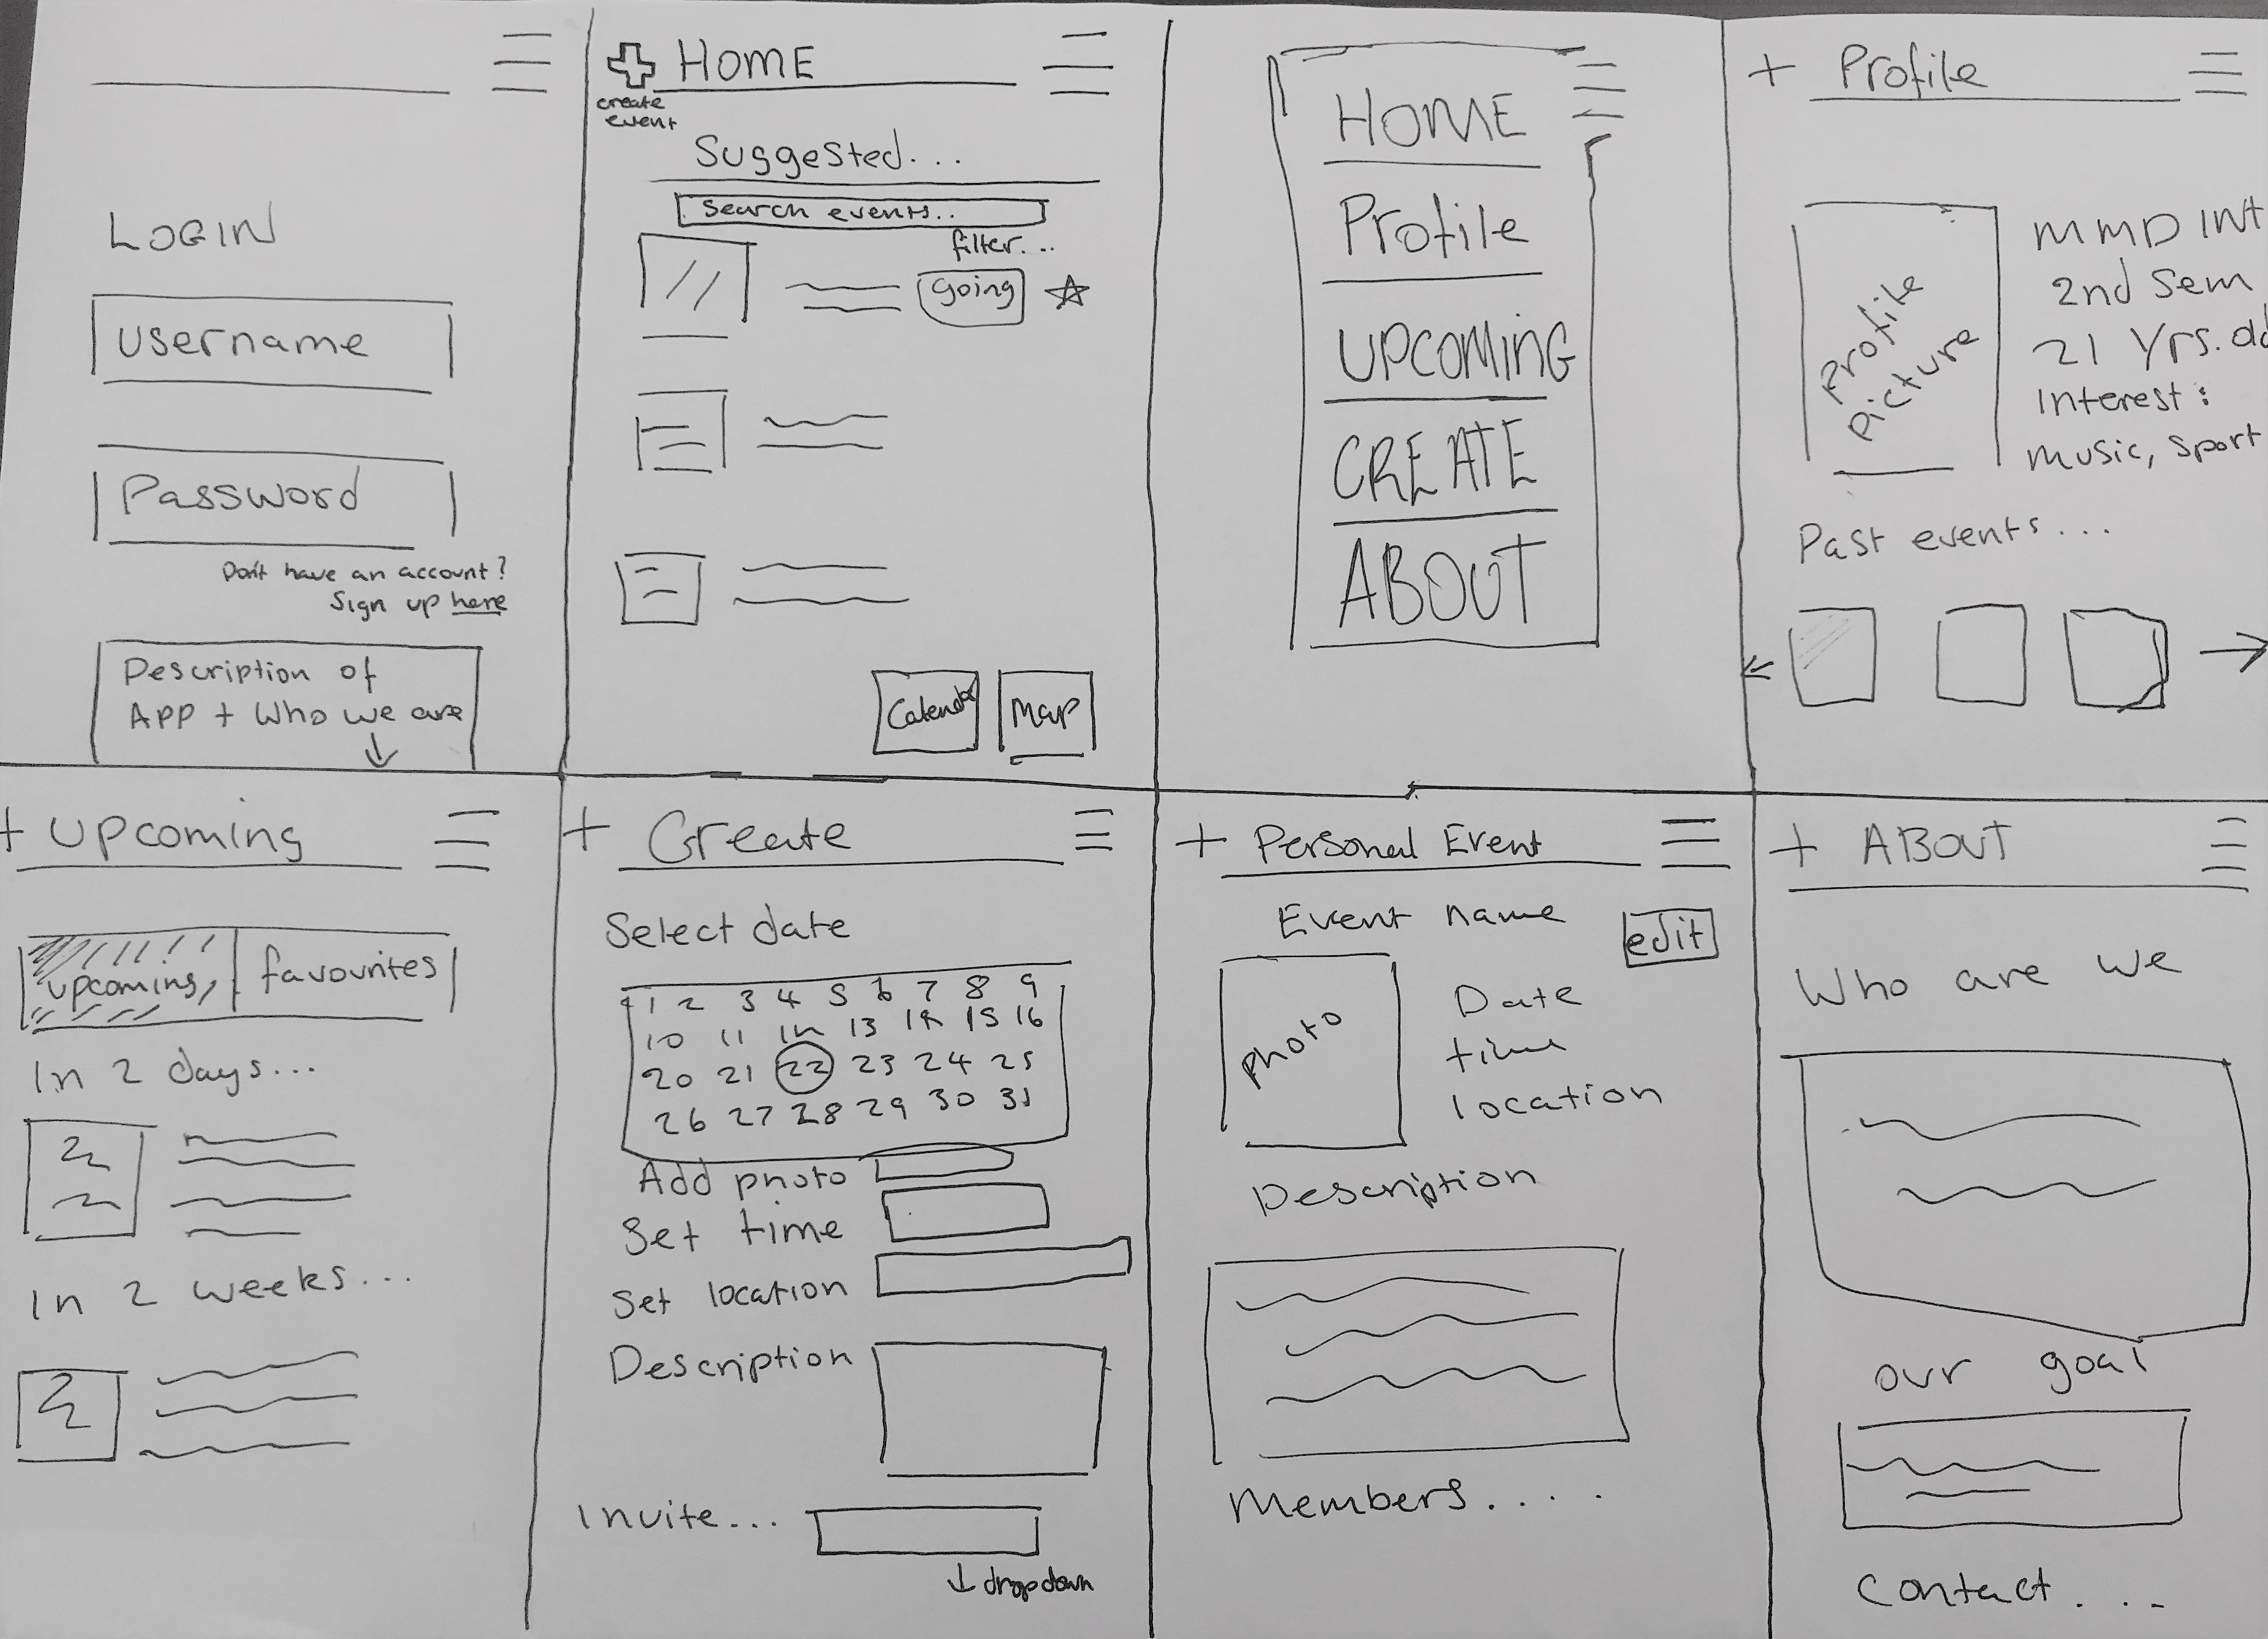 LOGIN
username
Password
Don't have an account?
Sign up here
Description of
APP + Who we are
HOME
create
event
Suggested...
Search events..
filter...
going
Map
HOME
Profile
UPCOMING
CREATE
ABOUT
+ Profile
Profile
picture
MMD INT
2nd Sem
21 Yrs.
Interest:
music, sport
Past events...
+ upcoming
upcoming, favourites
In 2 days...
In 2 weeks...
+ Create
Select date
1 2 3 4 5 6 7 8 9
10 11 13 15 16
20 21 22 23 24 25
26 27 28 29 30 31
Add photo
Set time
Set location
Description
Invite...
dropdown
+ Personal Event
Event name
edit
photo
Date
time
location
Description
Members....
+ ABOUT
Who are we
our goal
Contact...